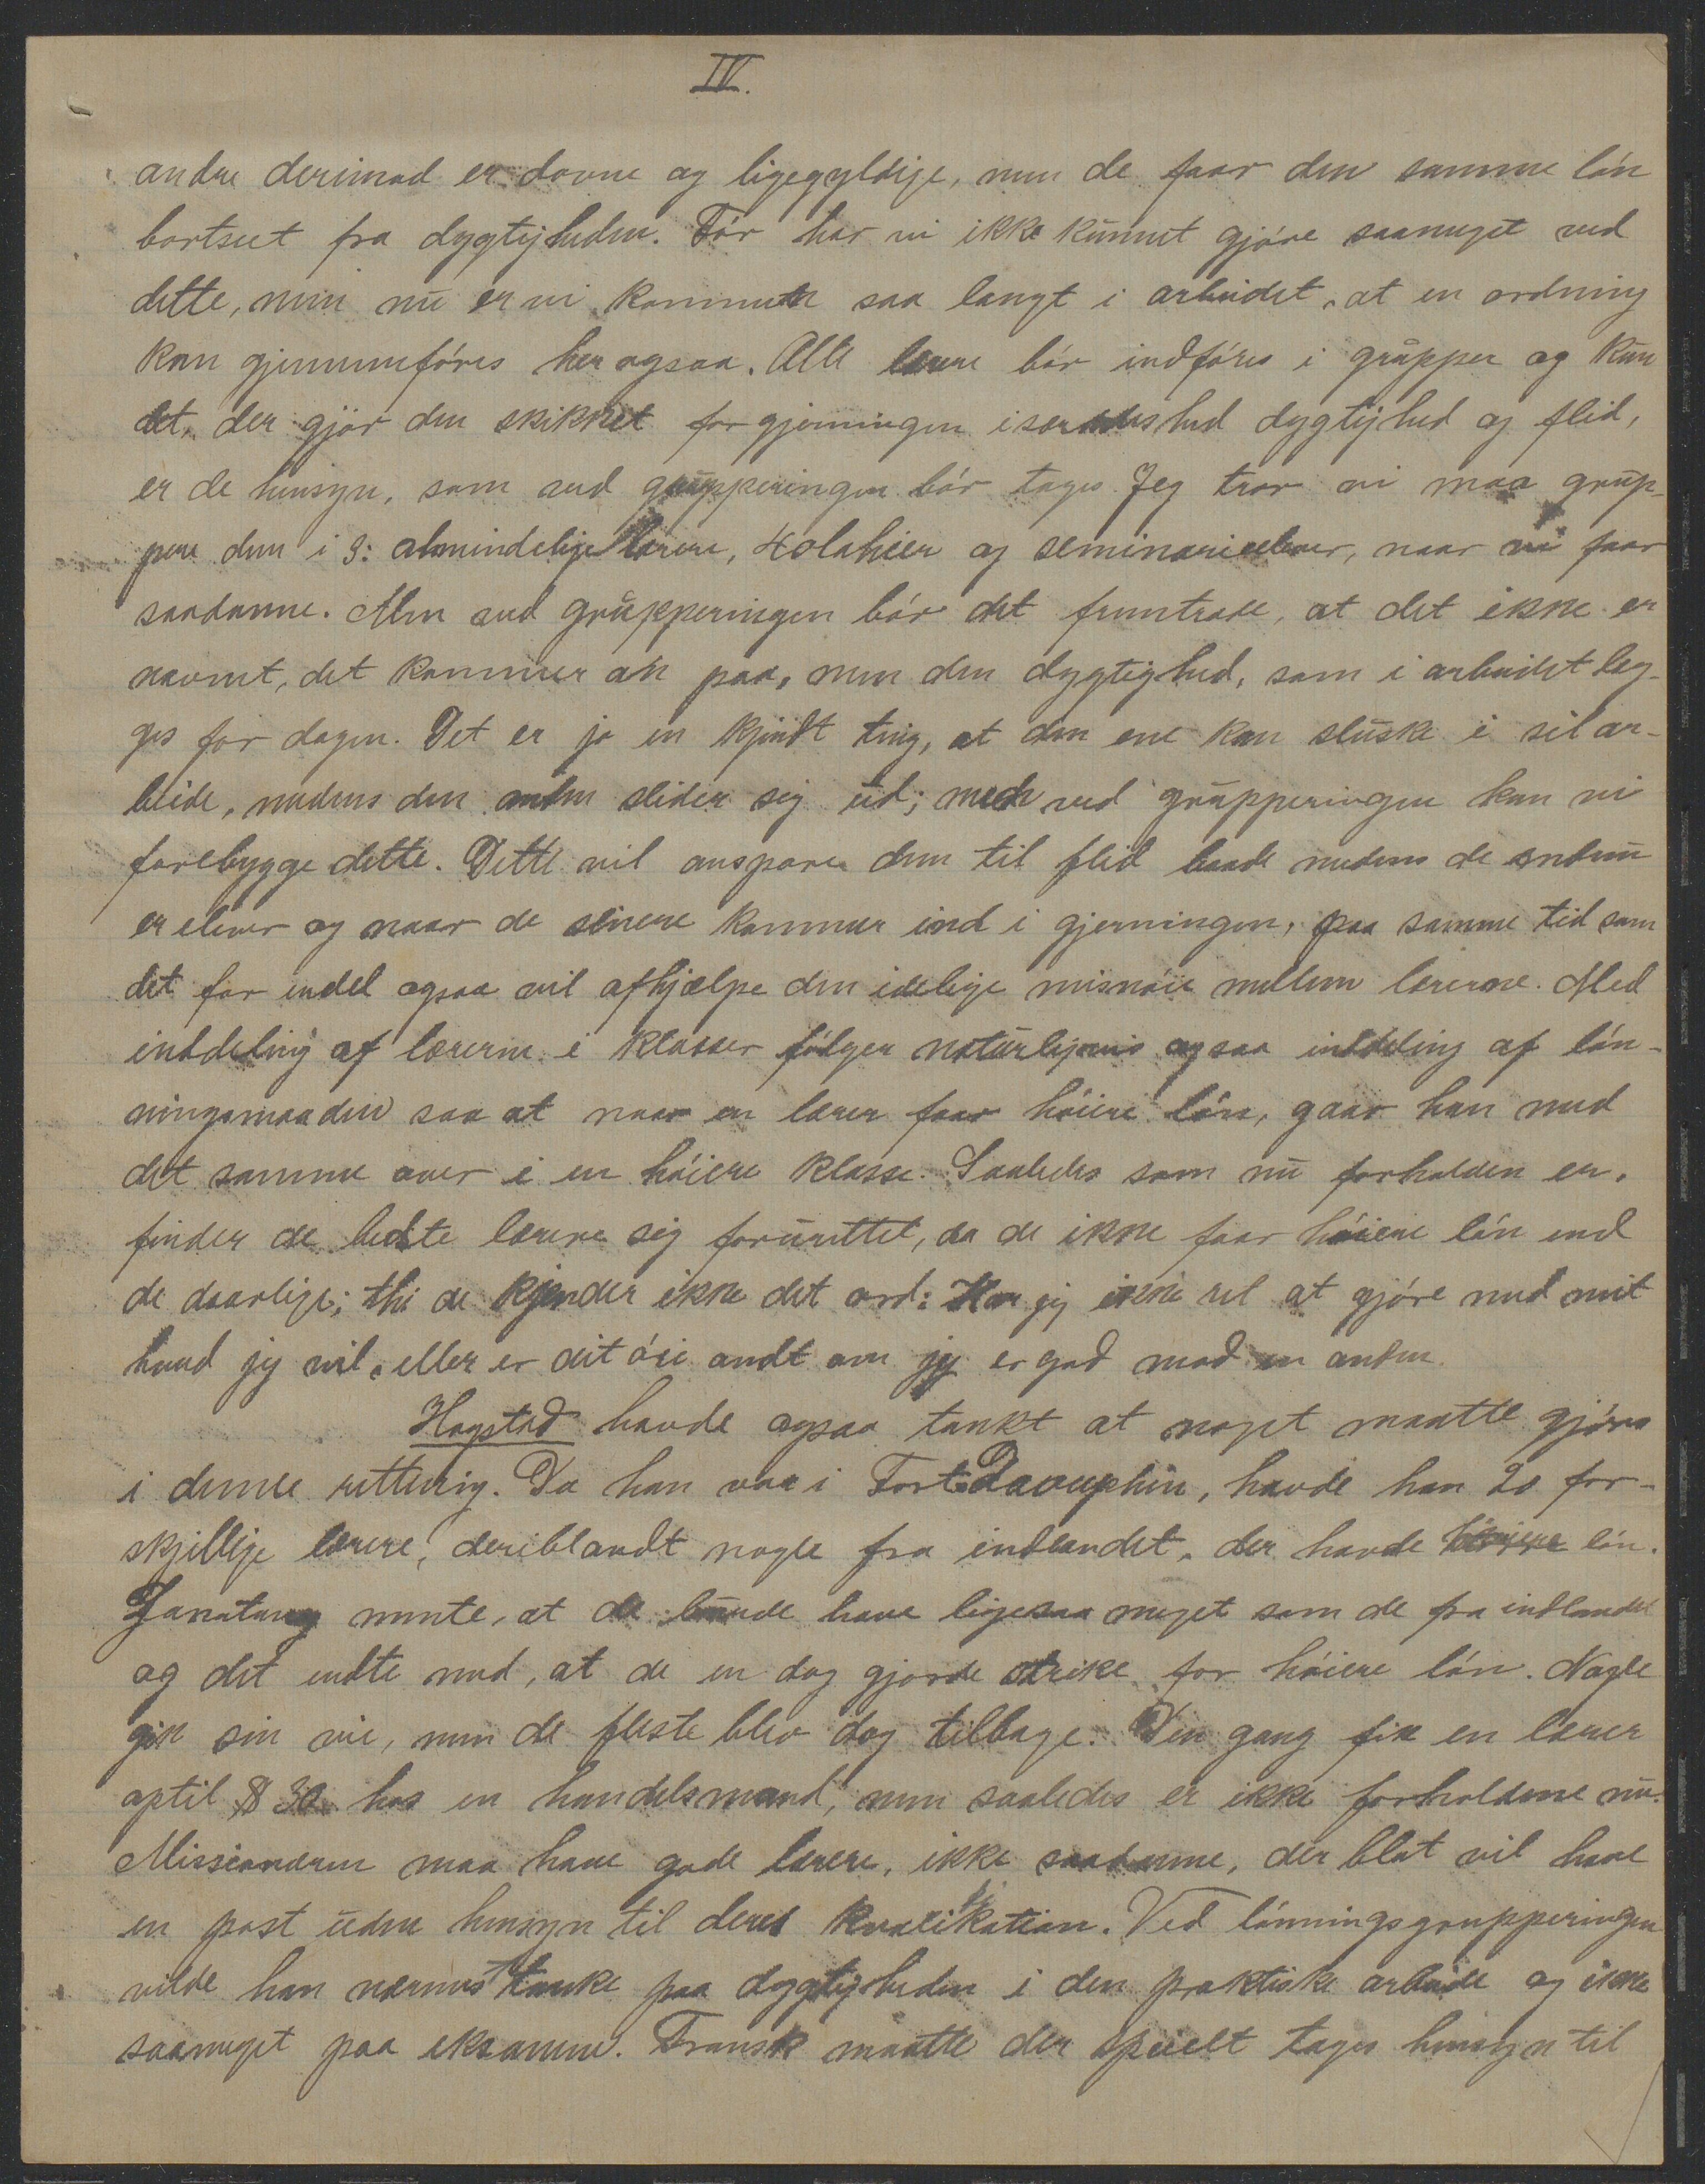 IV.
andre derimod er dovne og ligegyldige, men de faar den samme lón
bortseet fra dygtigheden. Fór har vi ikke kunnet gjóre saameget ved
dette, men nu er vi kommen saa langt i arbeidet, at en ordning
kan gjennemfóres her ogsaa. Alle lærere bór indfóres i grupper og kun
det, der gjór den skikket for gjerningen isærdeshed dygtighed og flid,
er de hensyn, som ved grupperingen bór tages. Jeg tror vi maa grup-
pere dem i 3: almindelige lærere, 4olahier og seminarieelever, naar vi faar
saadanne. Men ved grupperingen bór det fremtræde, at det ikke er
navnet, det kommer an paa, men den dygtighed, som i arbeidet læg-
ges for dagen. Det er jo en kjendt ting, at den ene kan sluske i sit ar-
beide, medens den anden slider sig ud; men ved grupperingen kan vi
forebygge dette. Dette vil anspore dem til flid baade medens de endnu
er elever og naar de senere kommer ind i gjerningen, paa samme tid som
det for endel ogsaa vil afhjælpe den idelige misnóie mellem lærerne. Med
inddeling af lærerne i klasser fólger naturligvis ogsaa inddeling af lón-
ningsmaaden saa at naar en lærer faar hóiere lón, gaar han med
det samme over i en hóiere klasse. Saaledes som nu forholden er,
finder de bedste lærere sig forurettet, da de ikke faar hóiere lón end
de daarlige; thi de kjender ikke det ord: Har jeg ikke ret at gjóre med mit
hvad jeg vil, eller er dit óie ondt om jeg er god mod en anden.
Hogstad havde ogsaa tænkt at noget maatte gjóres
i denne retning. Da han var i Fort Daouphin, havde han 20 for-
skjellige lærere, deriblandt nogle fra indlandet, der havde hóiere lón.
Tanatanoy mente, at de burde have ligesaa meget som de fra indlandet
og det endte med, at de en dag gjorde strike for hóiere lón. Nogle
gik sin vei, men de fleste blev dog tilbage. Den gang fik en lærer
optil $ 30 hos en handelsmand, men saaledes er ikke forholdene nu.
Missionæren maa have gode lærere, ikke saadanne, der blot vil have
en post uden hensyn til deres kvalifikation. Ved lónningsgrupperingen
vilde han nærmest tænke paa dygtigheden i den praktiske arbeide og ikke
saameget paa eksamen. Fransk maatte der specielt tages hensyn til